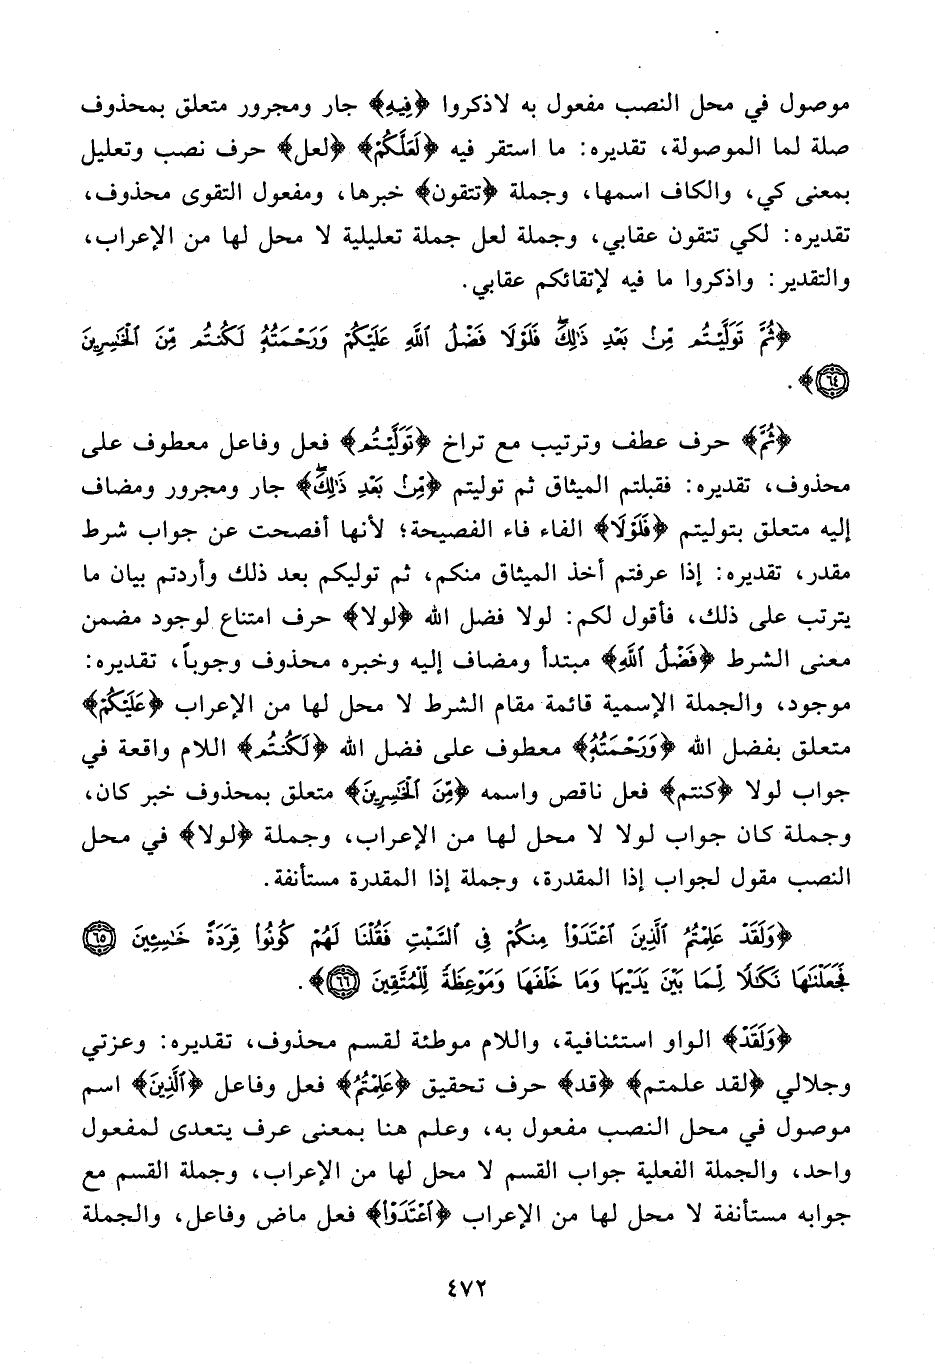 موصول في محل النصب مفعول به لاذكروا ﴿فِيهِ﴾ جار ومجرور متعلق بمحذوف
صلة لما الموصولة، تقديره: ما استقر فيه ﴿لَعَلَّكُمْ﴾ ﴿لعل﴾ حرف نصب وتعليل
بمعنى كي، والكاف اسمها، وجملة ﴿تتقون﴾ خبرها، ومفعول التقوى محذوف،
تقديره: لكي تتقون عقابي، وجملة لعل جملة تعليلية لا محل لها من الإعراب،
والتقدير: واذكروا ما فيه لإتقائكم عقابي.
﴿ثُمَّ تَوَلَّيْتُم مِّنۢ بَعْدِ ذَٰلِكَۖ فَلَوْلَا فَضْلُ ٱللَّهِ عَلَيْكُمْ وَرَحْمَتُهُۥ لَكُنتُم مِّنَ ٱلْخَٰسِرِينَ
٦٤﴾.
﴿ثُمَّ﴾ حرف عطف وترتيب مع تراخ ﴿تَوَلَّيْتُم﴾ فعل وفاعل معطوف على
محذوف، تقديره: فقبلتم الميثاق ثم توليتم ﴿مِّنۢ بَعْدِ ذَٰلِكَۖ﴾ جار ومجرور ومضاف
إليه متعلق بتوليتم ﴿فَلَوْلَا﴾ الفاء فاء الفصيحة؛ لأنها أفصحت عن جواب شرط
مقدر، تقديره: إذا عرفتم أخذ الميثاق منكم، ثم توليكم بعد ذلك وأردتم بيان ما
يترتب على ذلك، فأقول لكم: لولا فضل الله ﴿لولا﴾ حرف امتناع لوجود مضمن
معنى الشرط ﴿فَضْلُ ٱللَّهِ﴾ مبتدأ ومضاف إليه وخبره محذوف وجوباً، تقديره:
موجود، والجملة الإسمية قائمة مقام الشرط لا محل لها من الإعراب ﴿عَلَيْكُمْ﴾
متعلق بفضل الله ﴿وَرَحْمَتُهُۥ﴾ معطوف على فضل الله ﴿لَكُنتُم﴾ اللام واقعة في
جواب لولا ﴿كنتم﴾ فعل ناقص واسمه ﴿مِّنَ ٱلْخَٰسِرِينَ﴾ متعلق بمحذوف خبر كان،
وجملة كان جواب لولا لا محل لها من الإعراب، وجملة ﴿لولا﴾ في محل
النصب مقول لجواب إذا المقدرة، وجملة إذا المقدرة مستأنفة.
﴿وَلَقَدْ عَلِمْتُمُ ٱلَّذِينَ ٱعْتَدَوْا۟ مِنكُمْ فِى ٱلسَّبْتِ فَقُلْنَا لَهُمْ كُونُوا۟ قِرَدَةً خَٰسِـِٔينَ ٦٥
فَجَعَلْنَٰهَا نَكَٰلًا لِّمَا بَيْنَ يَدَيْهَا وَمَا خَلْفَهَا وَمَوْعِظَةً لِّلْمُتَّقِينَ ٦٦﴾.
﴿وَلَقَدْ﴾ الواو استئنافية، واللام موطئة لقسم محذوف، تقديره: وعزتي
وجلالي ﴿لقد علمتم﴾ ﴿قد﴾ حرف تحقيق ﴿عَلِمْتُمُ﴾ فعل وفاعل ﴿ٱلَّذِينَ﴾ اسم
موصول في محل النصب مفعول به، وعلم هنا بمعنى عرف يتعدى لمفعول
واحد، والجملة الفعلية جواب القسم لا محل لها من الإعراب، وجملة القسم مع
جوابه مستأنفة لا محل لها من الإعراب ﴿ٱعْتَدَوْا۟﴾ فعل ماض وفاعل، والجملة
٤٧٢